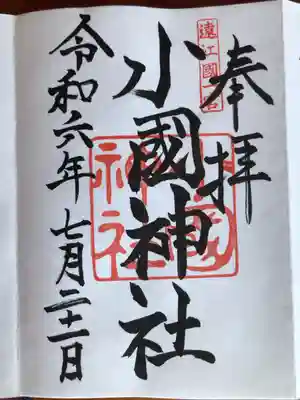 奉拝
遠江國一宮
小國神社
小國神社
令和六年七月二十一日